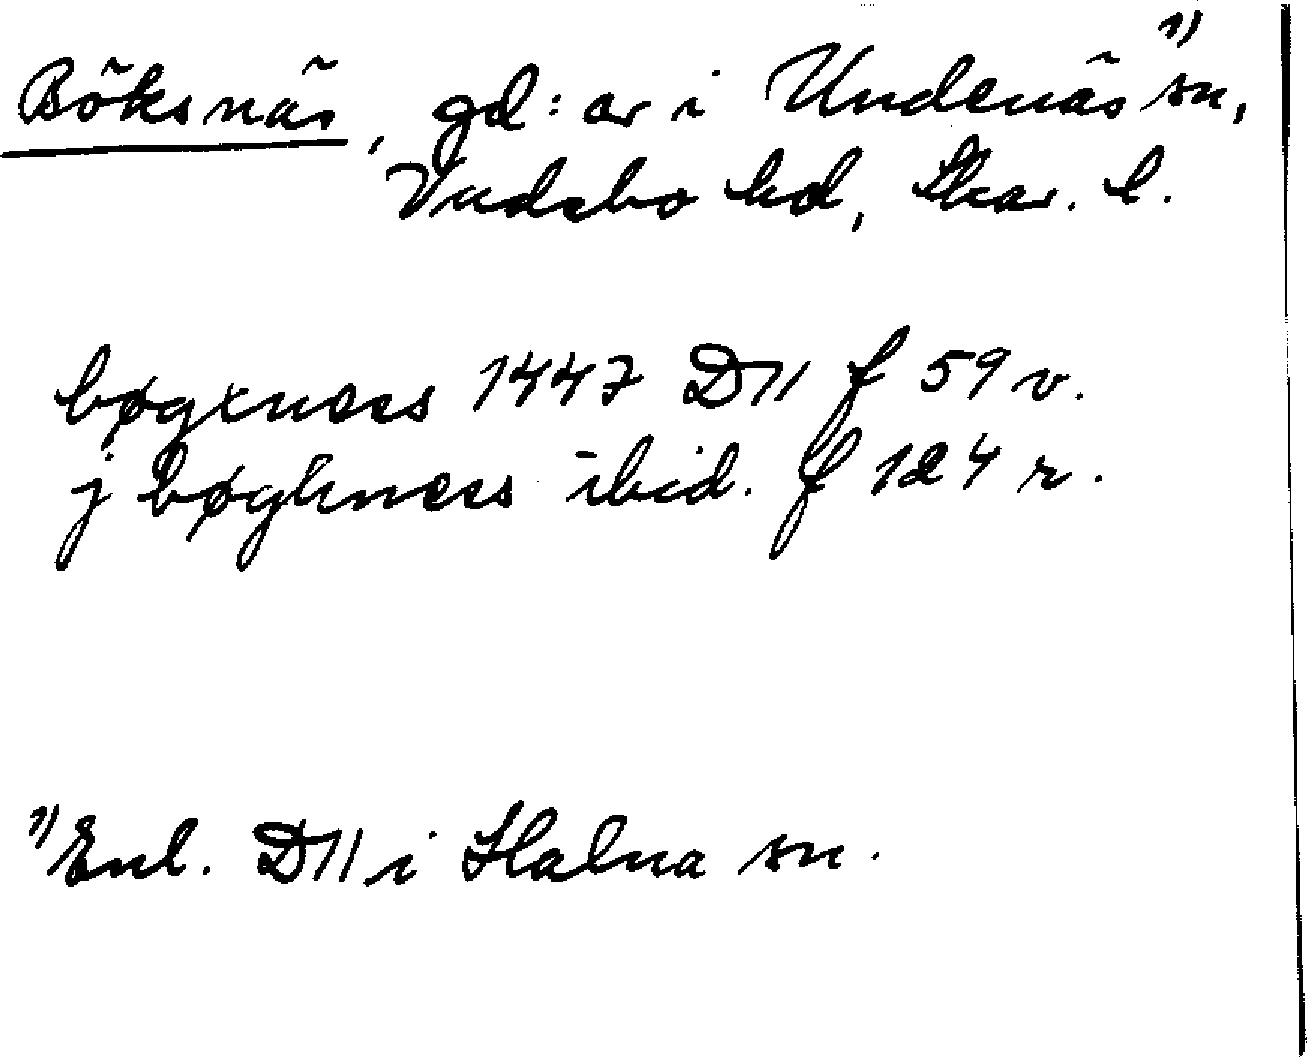 Böksnäs, gd:ar i Undenäs ¹⁾ sn,
Vadsbo hd, Skar. l.
bøgxness 1447 D11 f 59 v.
j bøghness ibid. f 124 r.
¹⁾ Enl. D11 i Halna sn.